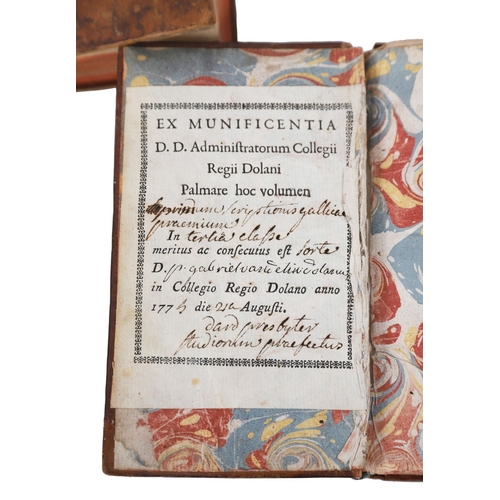 EX MUNIFICENTIA
D. D. Adminiſtratorum Collegii
Regii Dolani
Palmare hoc volumen
scriptionis gallicae
praemium
In tertia claſse
meritus ac conſecutus eſt sorte
D. p. gabriel
in Collegio Regio Dolano anno
177 die 21a Auguſti.
dard presbyter
studiorum praefectus